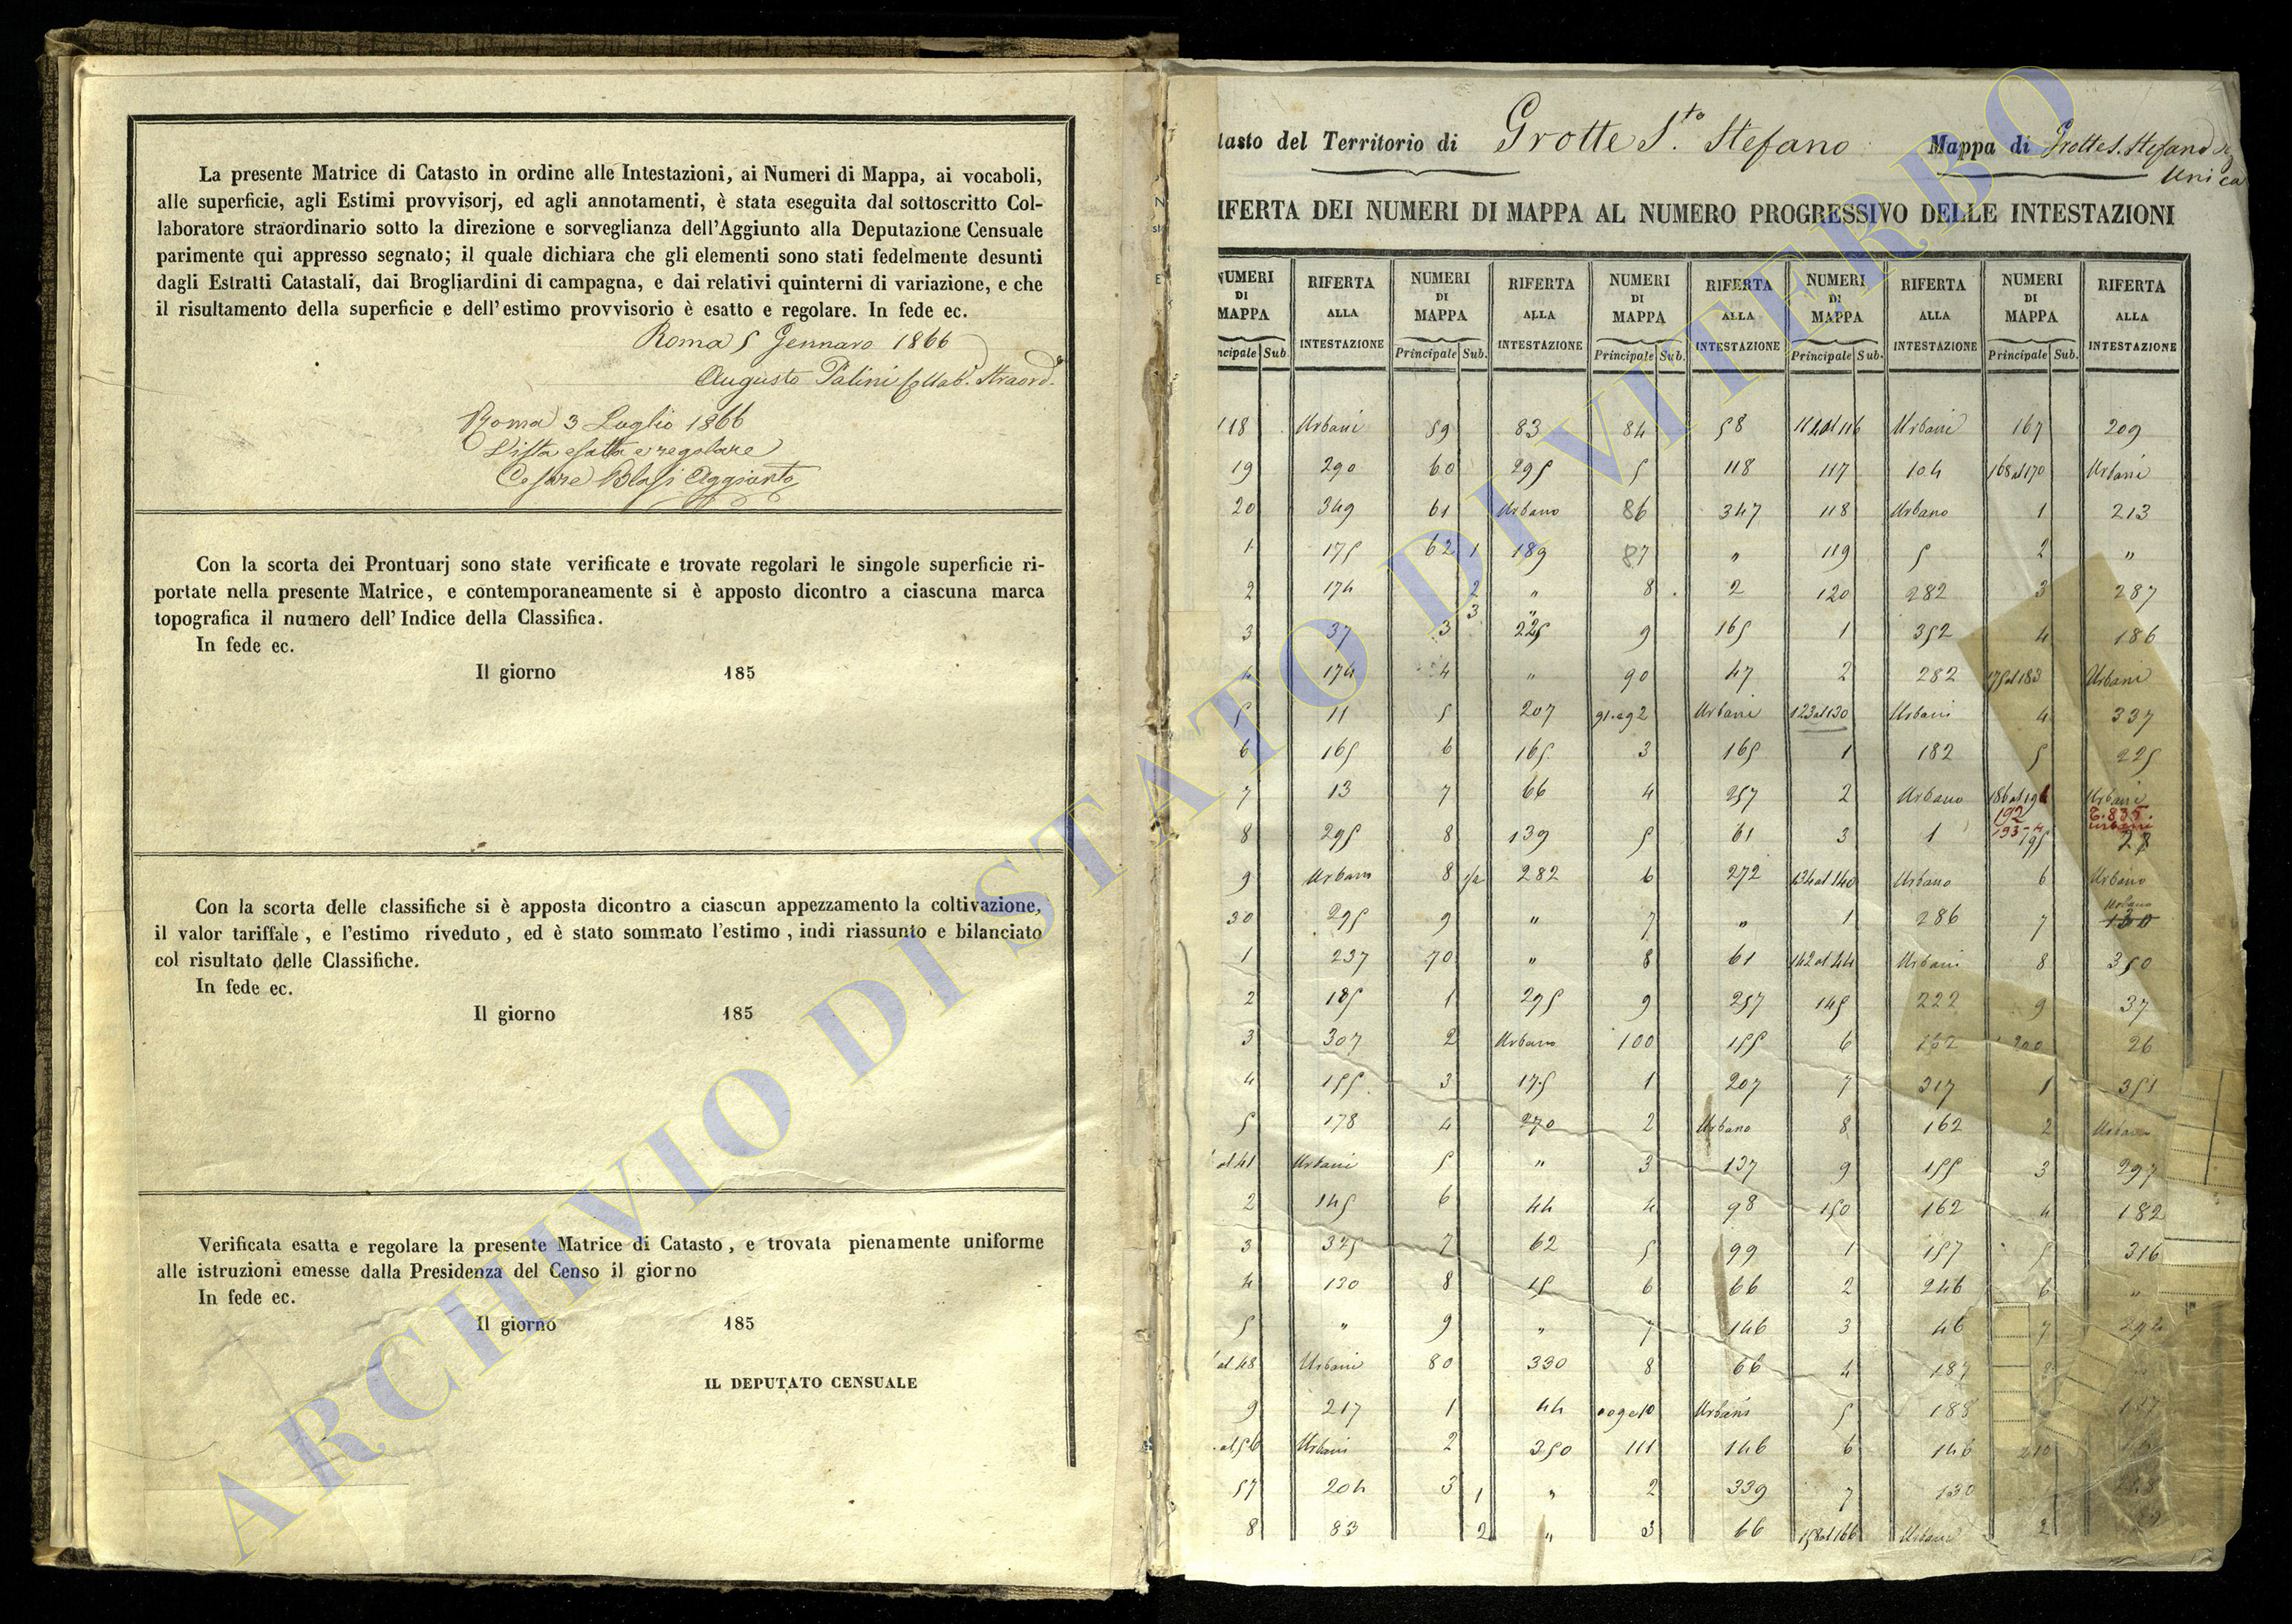 La presente Matrice di Catasto in ordine alle Intestazioni, ai Numeri di Mappa, ai vocaboli,
alle superficie, agli Estimi provvisorj, ed agli annotamenti, è stata eseguita dal sottoscritto Col-
laboratore straordinario sotto la direzione e sorveglianza dell'Aggiunto alla Deputazione Censuale
parimente qui appresso segnato; il quale dichiara che gli elementi sono stati fedelmente desunti
dagli Estratti Catastali, dai Brogliardini di campagna, e dai relativi quinterni di variazione, e che
il risultamento della superficie e dell'estimo provvisorio è esatto e regolare. In fede ec.
Roma 5 Gennaro 1866
Augusto Palini Collab. Straord.
Roma 3 Luglio 1866
Vista esatta e regolare
Cesare Blasi Aggiunto
Con la scorta dei Prontuarj sono state verificate e trovate regolari le singole superficie ri-
portate nella presente Matrice, e contemporaneamente si è apposto dicontro a ciascuna marca
topografica il numero dell'Indice della Classifica.
In fede ec.
Il giorno 185
Con la scorta delle classifiche si è apposta dicontro a ciascun appezzamento la coltivazione,
il valor tariffale, e l'estimo riveduto, ed è stato sommato l'estimo, indi riassunto e bilanciato
col risultato delle Classifiche.
In fede ec.
Il giorno 185
Verificata esatta e regolare la presente Matrice di Catasto, e trovata pienamente uniforme
alle istruzioni emesse dalla Presidenza del Censo il giorno
In fede ec.
Il giorno 185
IL DEPUTATO CENSUALE
tasto del Territorio di Grotte S.to Stefano Mappa di Grotte S. Stefano
Unica
IFERTA DEI NUMERI DI MAPPA AL NUMERO PROGRESSIVO DELLE INTESTAZIONI
NUMERI RIFERTA NUMERI RIFERTA NUMERI RIFERTA NUMERI RIFERTA NUMERI RIFERTA
DI ALLA DI ALLA DI ALLA DI ALLA DI ALLA
MAPPA INTESTAZIONE MAPPA INTESTAZIONE MAPPA INTESTAZIONE MAPPA INTESTAZIONE MAPPA INTESTAZIONE
ncipale Sub. Principale Sub. Principale Sub. Principale Sub. Principale Sub.
118 Urbani 59 83 84 58 114 al 116 Urbani 167 209
19 290 60 295 5 118 117 104 168 al 170 Urbani
20 349 61 Urbano 86 347 118 Urbano 1 213
1 175 62 1 189 87 " 119 5 2 "
2 174 2 " 8 2 120 282 3 287
3 37 3 3 225 9 165 1 352 4 186
4 174 4 " 90 47 2 282 175 al 183 Urbani
5 11 5 207 91 e 92 Urbani 123 al 130 Urbani 4 337
6 165 6 165 3 165 1 182 5 225
7 13 7 66 4 257 2 Urbano 186 al 191 Urbani
192 E. 835.
8 295 8 139 5 61 3 1 193-4 urbani
195 28
9 Urbano 8 1/2 282 6 272 134 al 140 Urbano 6 Urbano
30 295 9 " 7 " 1 286 7 Urbano 130
1 237 70 " 8 61 142 al 44 Urbani 8 350
2 185 1 295 9 257 145 222 9 37
3 307 2 Urbano 100 155 6 162 200 26
4 155 3 175 1 207 7 317 1 351
5 178 4 270 2 Urbano 8 162 2 Urbano
al 41 Urbani 5 " 3 137 9 155 3 297
2 145 6 44 4 98 150 162 4 182
3 325 7 62 5 99 1 157 5 316
4 130 8 15 6 66 2 246 6 "
5 " 9 " 7 146 3 46 7 292
al 48 Urbani 80 330 8 66 4 187 8
9 217 1 44 109 e 10 Urbani 5 188
al 56 Urbani 2 350 111 146 6 146 210
57 204 3 1 " 2 339 7 130
8 83 2 " 3 66 158 al 166 Urbani 2
ARCHIVIO DI STATO DI VITERBO